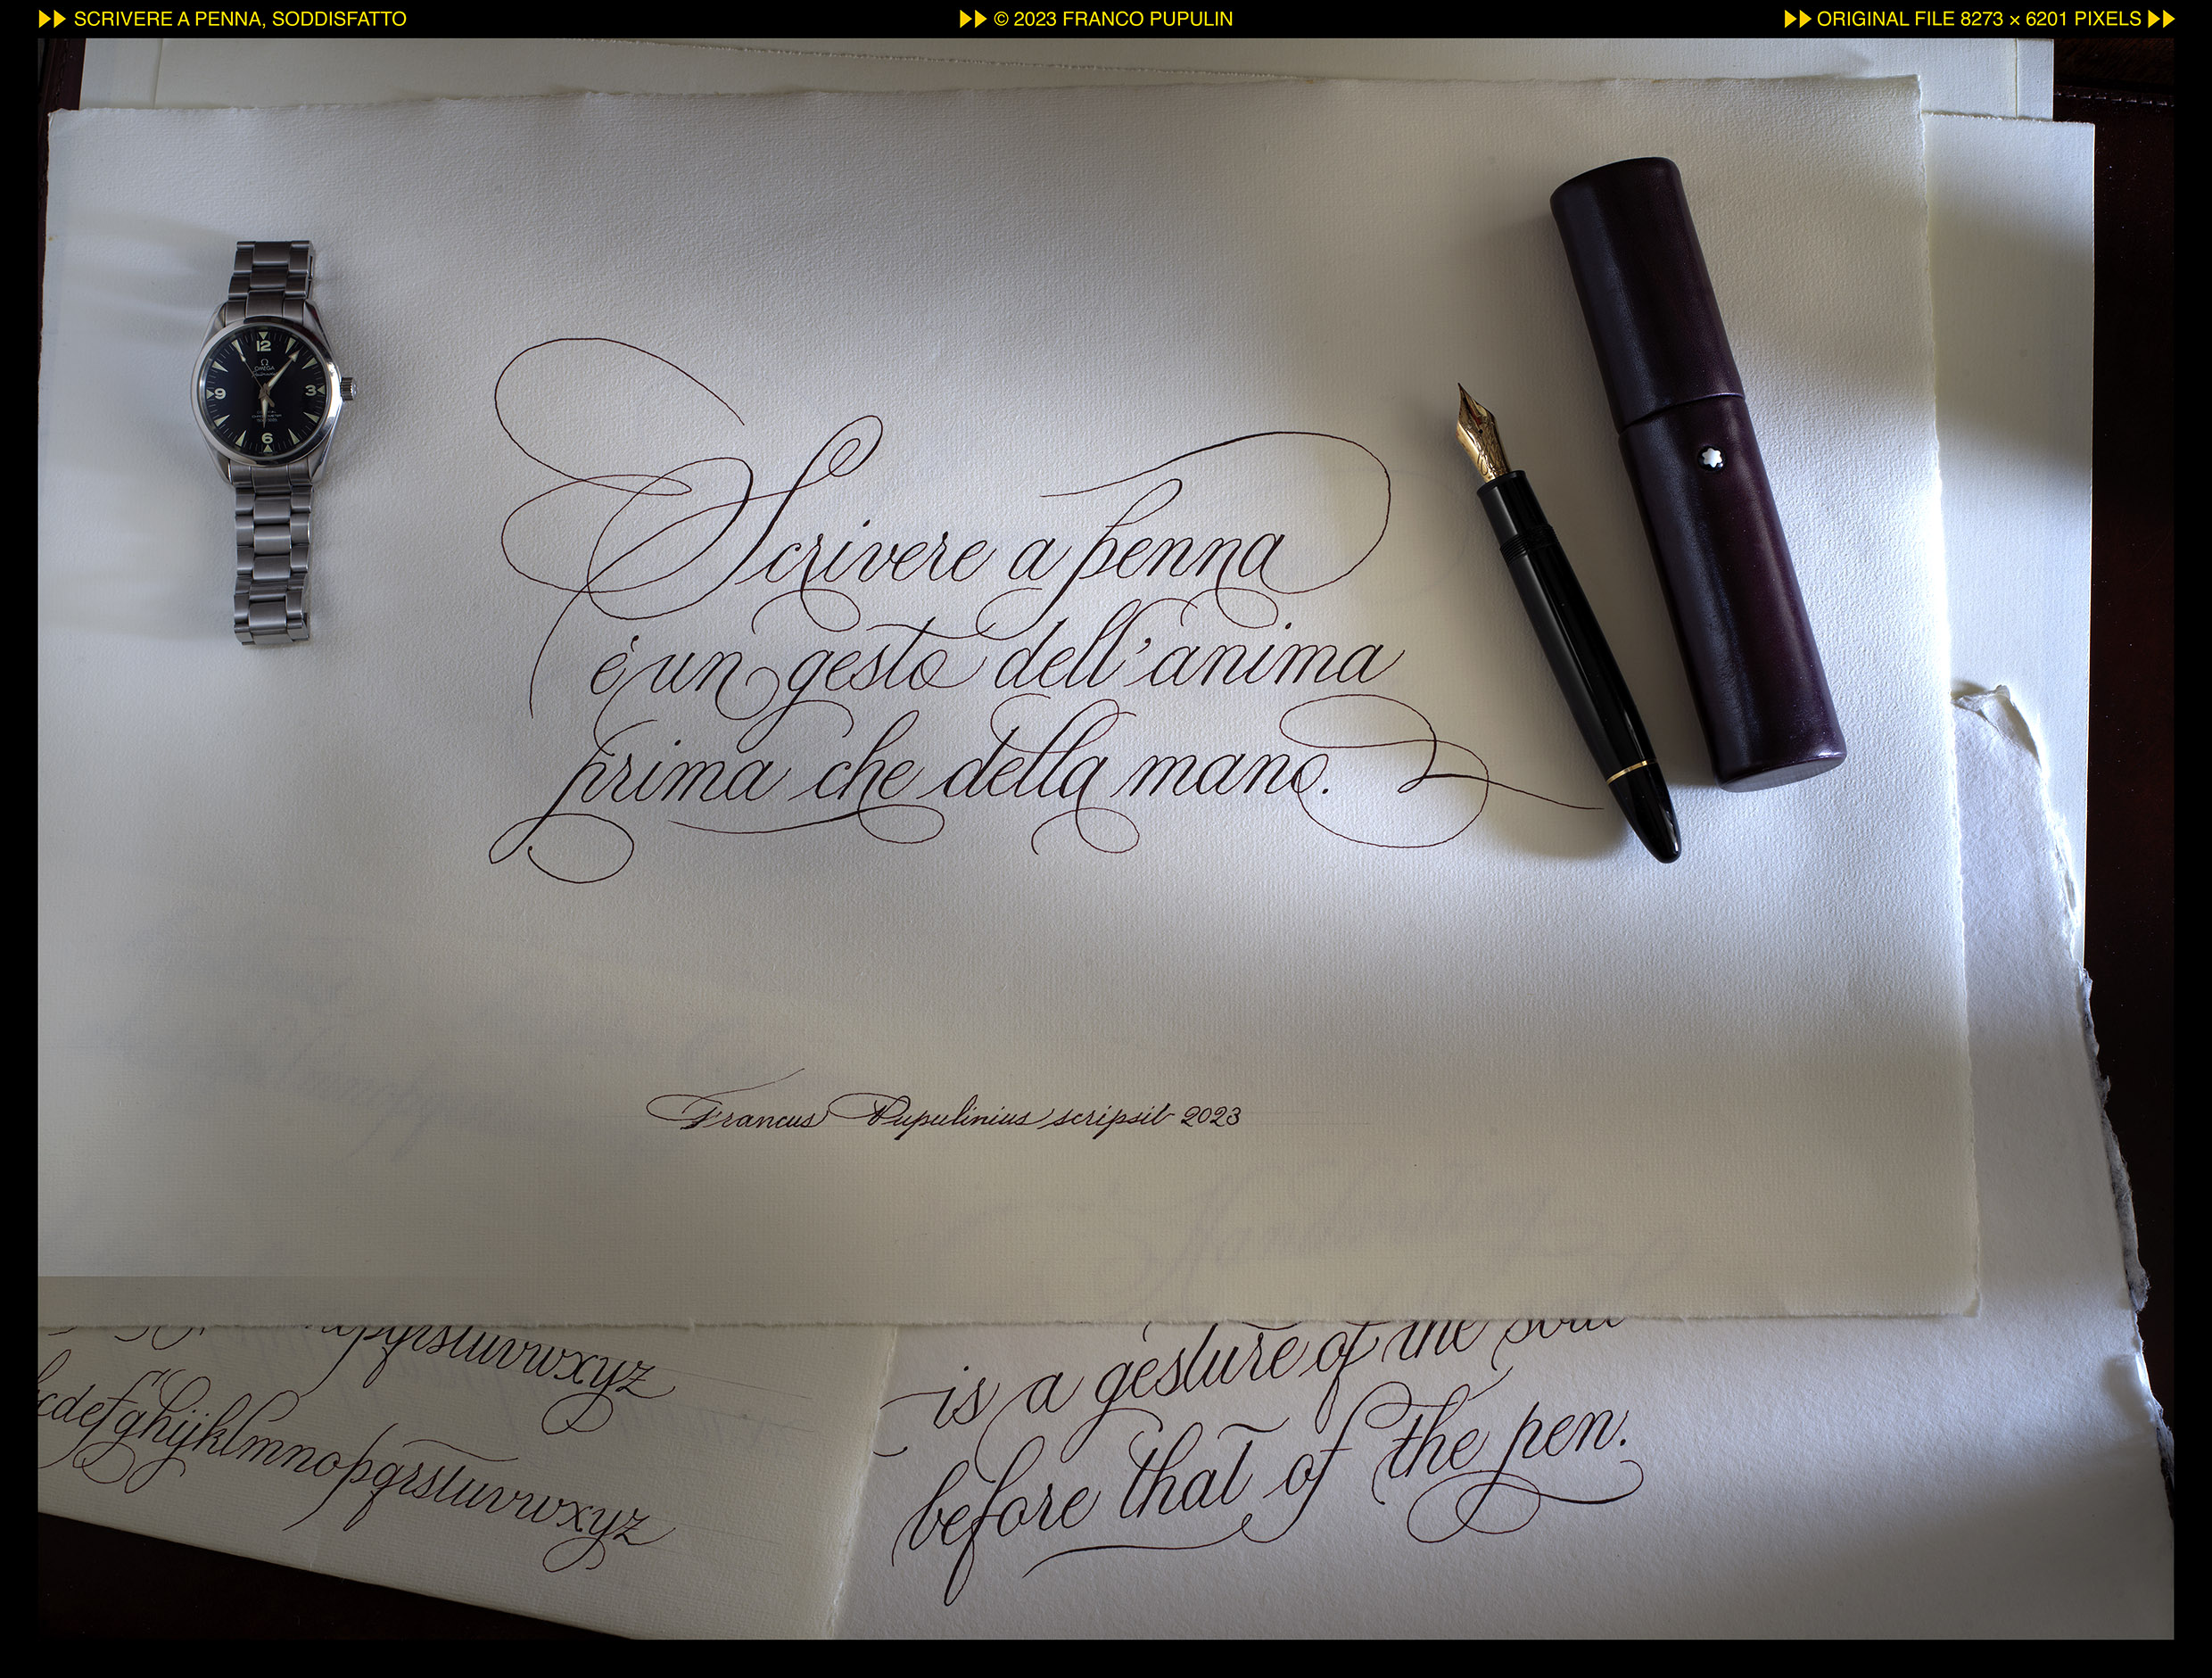 SCRIVERE A PENNA, SODDISFATTO
© 2023 FRANCO PUPULIN
ORIGINAL FILE 8273 × 6201 PIXELS
12
OMEGA
9 3
6
Scrivere a penna
è un gesto dell'anima
prima che della mano.
Francus Pupulinius scripsit 2023
nopqrstuvwxyz
cdefghijklmnopqrstuvwxyz
is a gesture of the soul
before that of the pen.